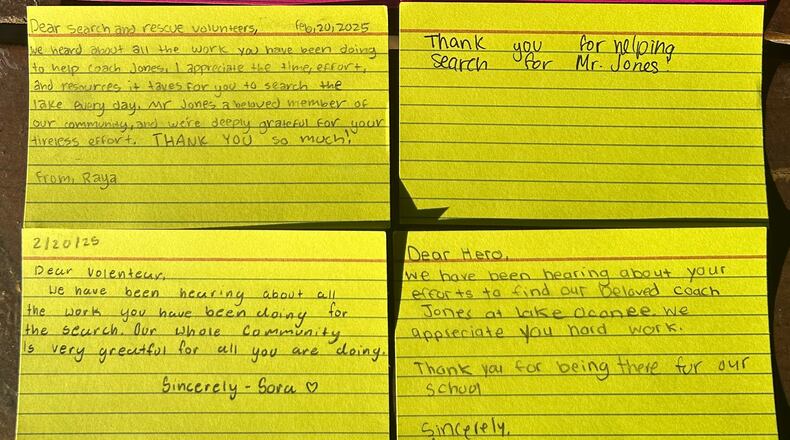 Dear Search and rescue volunteers, Feb,20,2025
We heard about all the work you have been doing
to help Coach Jones. I appreciate the time, effort,
and resources it taves for you to search the
lake every day. Mr Jones a beloved member of
our community, and we're deeply grateful for your
tireless effort. THANK YOU so much!
From, Raya
Thank you for helping
search for Mr. Jones!
2/20/25
Dear Volenteur,
We have been hearing about all
the work you have been doing for
the search. Our whole Community
Is very greatful for all you are doing.
Sincerely - Sora ♡
Dear Hero,
We have been hearing about your
efforts to find our beloved coach
Jones at lake Oconee. We
appreciate you hard work.
Thank you for being there for our
school
Sincerely,